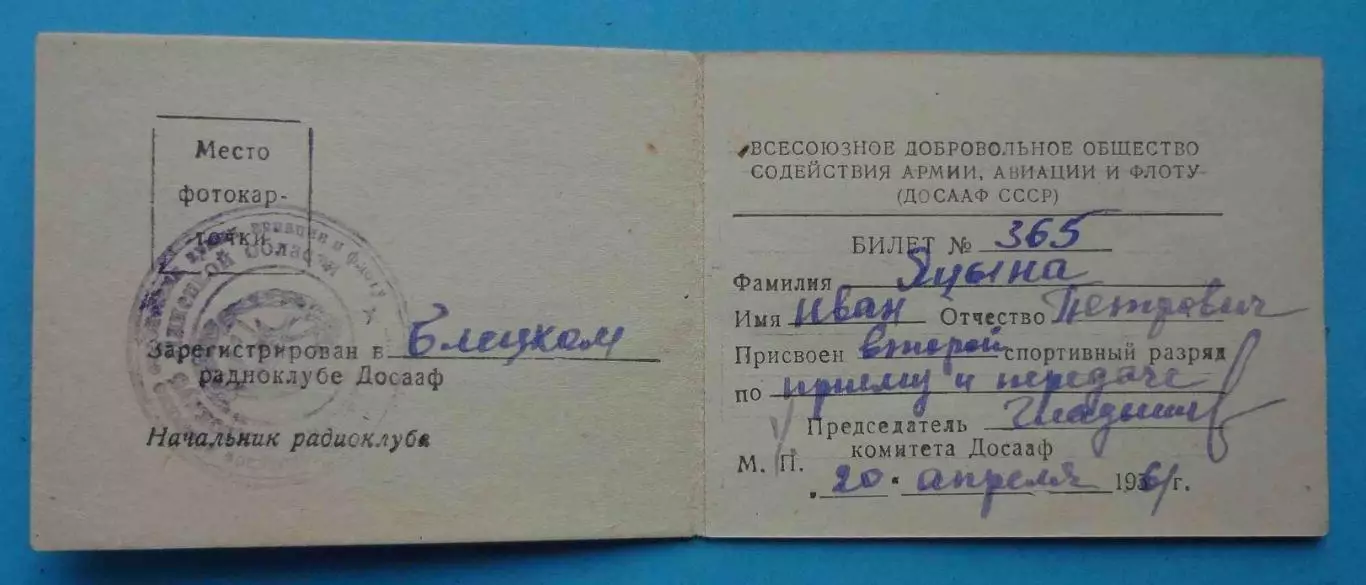 Место
фотокар-
точки
авиации и флоту
ской области
Зарегистрирован в Елецком
радиоклубе Досааф
Начальник радиоклуба
ВСЕСОЮЗНОЕ ДОБРОВОЛЬНОЕ ОБЩЕСТВО
СОДЕЙСТВИЯ АРМИИ, АВИАЦИИ И ФЛОТУ
(ДОСААФ СССР)
БИЛЕТ № 365
Фамилия Яцына
Имя Иван Отчество Петрович
Присвоен второй спортивный разряд
по приему и передаче
Председатель
комитета Досааф
М. П.
"20" апреля 1961 г.